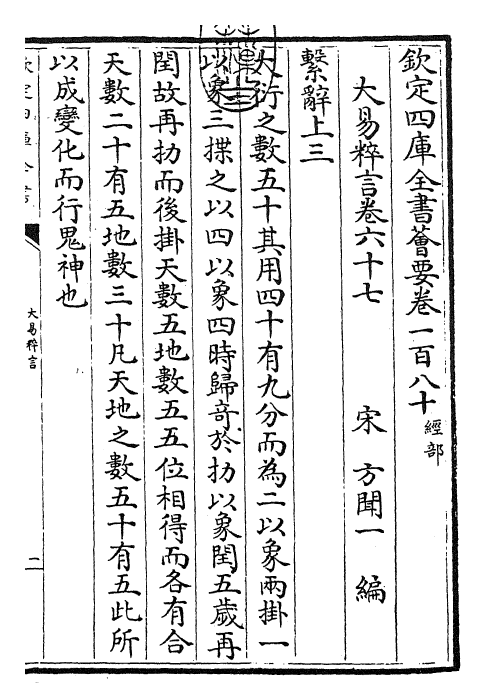 欽定四庫全書薈要卷一百八十 經部
大易粹言卷六十七 宋 方聞一 編
繫辭上三
大衍之數五十其用四十有九分而為二以象兩掛一
以象三揲之以四以象四時歸奇於扐以象閏五歲再
閏故再扐而後掛天數五地數五五位相得而各有合
天數二十有五地數三十凡天地之數五十有五此所
以成變化而行鬼神也
大易粹言